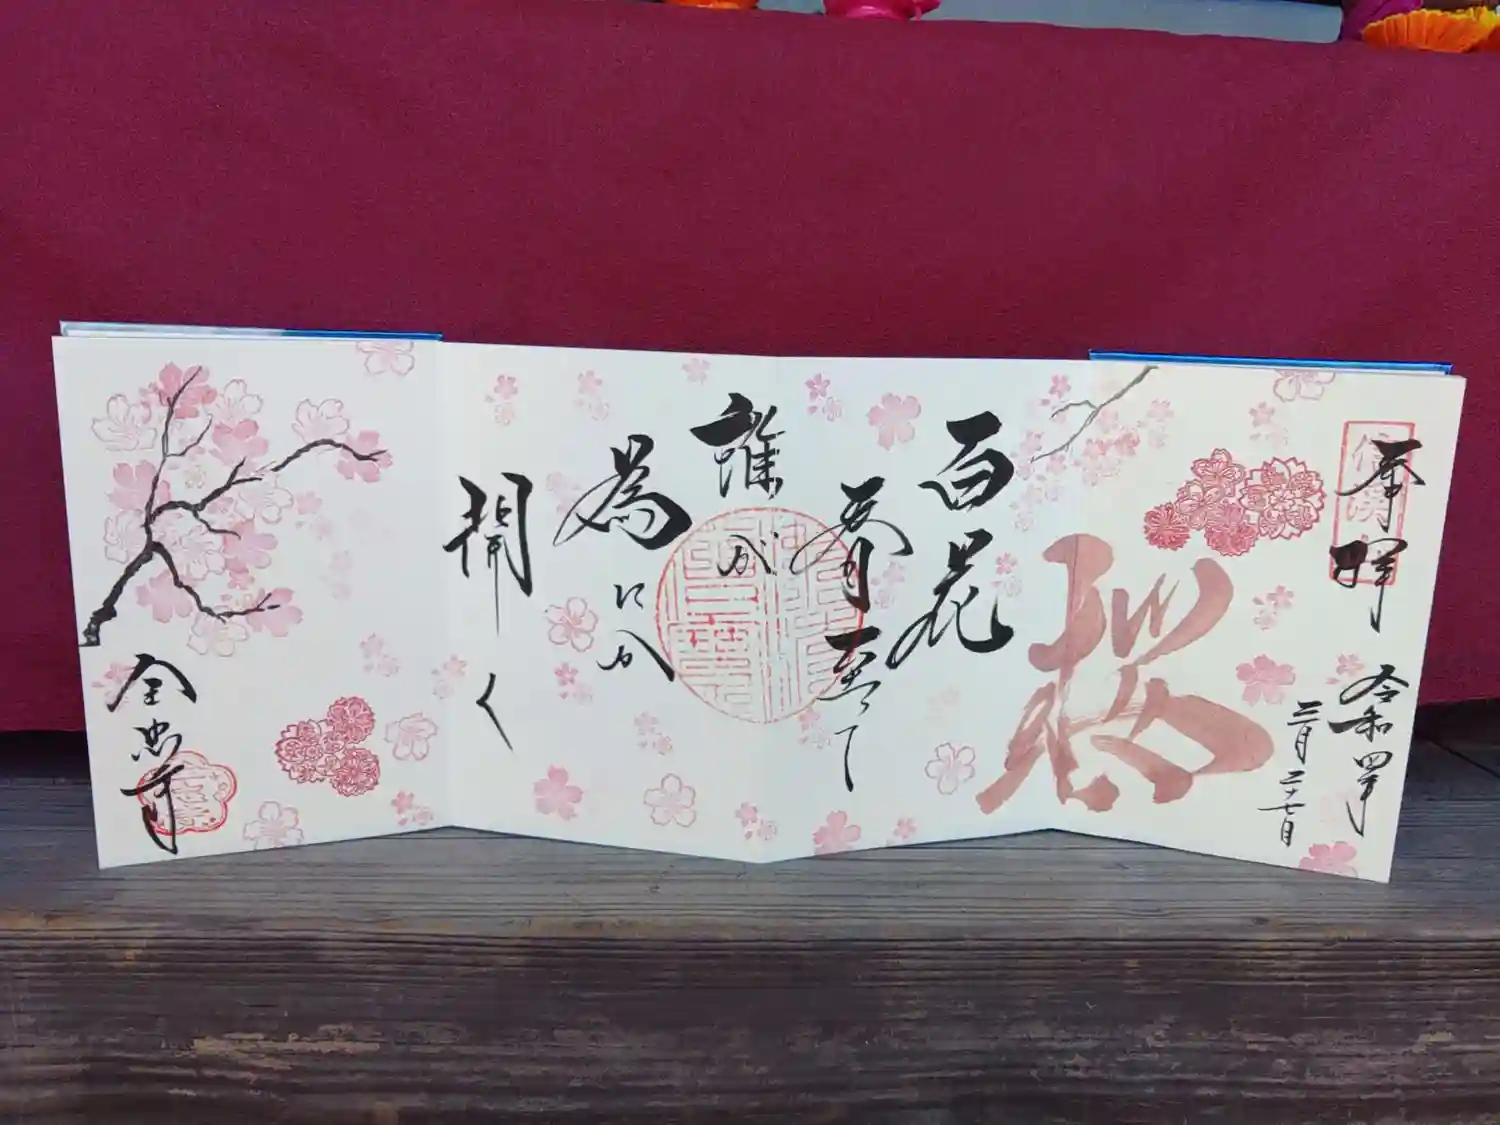 奉拝
令和四年
三月二十七日
桜
百花
春至って
誰が
為にか
開く
全忠寺